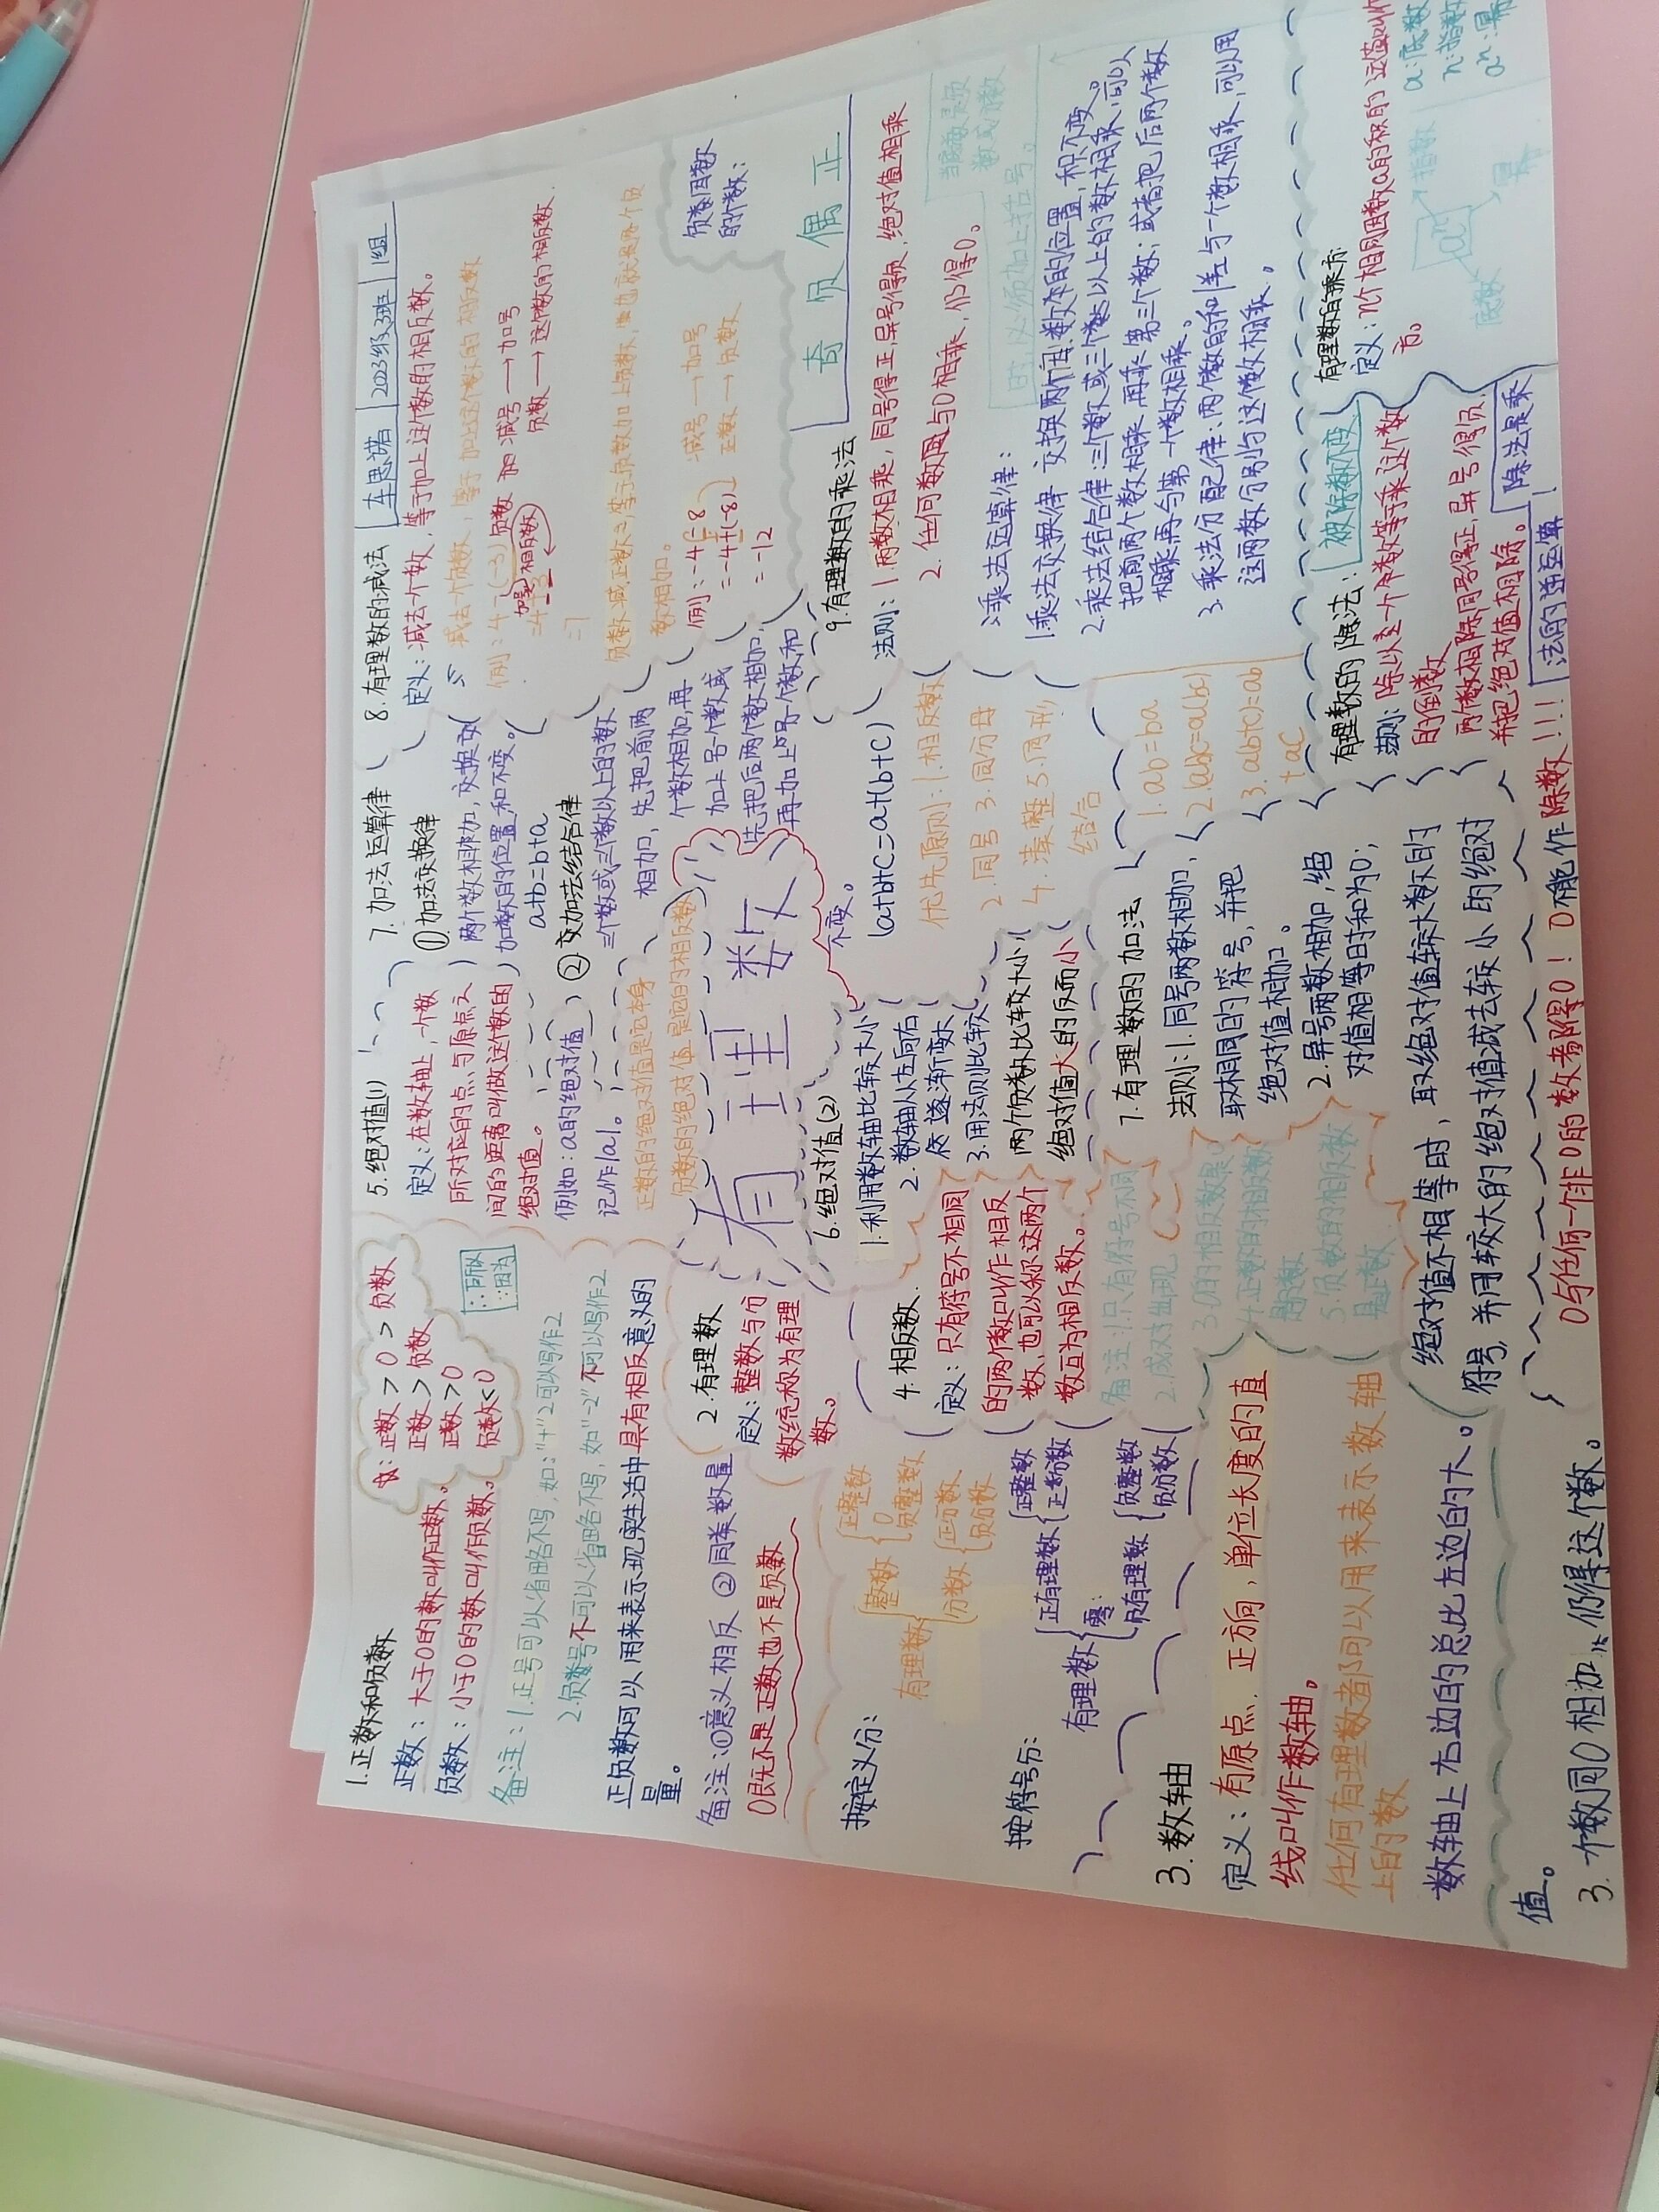 1.正数和负数
正数：大于0的数叫作正数。
负数：小于0的数叫作负数。
正数>0>负数
正数>负数
正数>0
负数<0
∴:所以
∵:因为
备注：1.正号可以省略不写,如:"+"2可以写作2
2.负号不可以省略不写,如"-2"不可以写作2
正负数可以用来表示现实生活中具有相反意义的
量。
备注:①意义相反 ②同类数量
0既不是正数也不是负数
2.有理数
定义：整数与分
数统称为有理
数。
按定义分：
有理数
整数
正整数
0
负整数
分数
正分数
负分数
按符号分：
有理数
正有理数
正整数
正分数
零:
负有理数
负整数
负分数
3.数轴
定义：有原点,正方向,单位长度的直
线叫作数轴。
任何有理数都可以用来表示数轴
上的数
数轴上右边的总比左边的大。
4.相反数
定义：只有符号不相同
的两个数叫作相反
数,也可以称这两个
数互为相反数。
备注:1.只有符号不同
2.成对出现
3.0的相反数是0
4.正数的相反数
是负数
5.负数的相反数
是正数
5.绝对值(1)
定义:在数轴上,一个数
所对应的点与原点之
间的距离叫做这个数的
绝对值。
例如:a的绝对值
记作|a|。
正数的绝对值是它本身
负数的绝对值是它的相反数
有理数
6.绝对值(2)
1.利用数轴比较大小
2.数轴从左向右
依逐渐变大
3.用法则比较
两个负数比较大小,
绝对值大的反而小
7.有理数的加法
法则:1.同号两数相加,
取相同的符号,并把
绝对值相加。
2.异号两数相加,绝
对值相等时和为0;
绝对值不相等时,取绝对值较大数的
符号,并用较大的绝对值减去较小的绝对
值。
3.一个数同0相加,仍得这个数。
7.加法运算律
①加法交换律
两个数相加,交换
加数的位置,和不变。
a+b=b+a
②加法结合律
三个数或三个数以上的数
相加,先把前两
个数相加,再
加上另一个数或
先把后两个数相加,
再加上另一个数和
不变。
(a+b)+c=a+(b+c)
优先原则:1.相反数
2.同号 3.同分母
4.凑整 5.同形
结合
8.有理数的减法
车思诺 2023级3班 1组
定义:减去一个数,等于加上这个数的相反数。
减去一个负数,等于加上这个数的相反数
例:4-(-3)
减号→加号
负数→这个数的相反数
相反数
负数减正数,等于负数加上负数,也就是两个负
数相加。
例:-4-8
=-4+(-8)
=-12
减号→加号
正数→负数
9.有理数的乘法
奇负偶正
负因数
的个数:
法则:1.两数相乘,同号得正,异号得负,绝对值相乘
2.任何数与0相乘,仍得0。
乘法运算律:
1.乘法交换律 交换两个因数的位置,积不变。
2.乘法结合律:三个数或三个数以上的数相乘,可以
把前两个数相乘,再乘第三个数;或者把后两个数
相乘再与第一个数相乘。
3.乘法分配律:两个数的和|差与一个数相乘,可以用
这两数分别与这个数相乘。
1.ab=ba
2.(ab)c=a(bc)
3.a(b+c)=ab
+ac
有理数的除法:
被除数不变
法则:除以一个数等于乘这个数
的倒数
两个数相除同号得正,异号得负,
并把绝对值相除。
除法是乘
法的逆运算
0与任何一个非0的数都得0!0不能作除数!!!
有理数的乘方
定义:n个相同因数a的积的运算叫作
方。
aⁿ
底数
指数
幂
a:底数
n:指数
aⁿ:幂